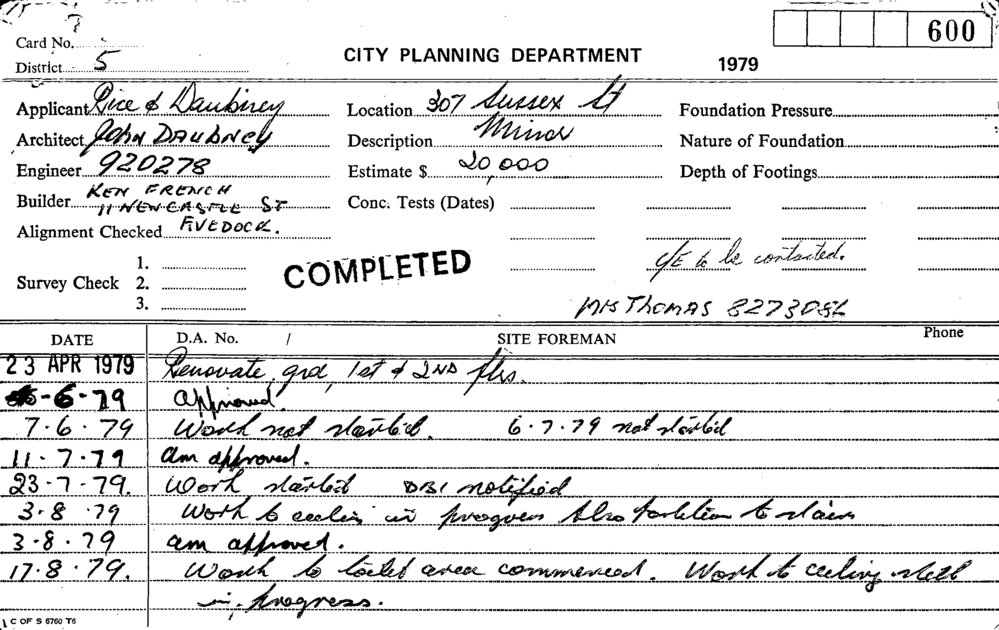 7
600
Card No.
CITY PLANNING DEPARTMENT 1979
District 5
Applicant Rice & Daubney Location 307 Sussex St Foundation Pressure
Architect John DAUBNEY Description Minor Nature of Foundation
Engineer 920278 Estimate $ 20,000 Depth of Footings
Builder KEN FRENCH Conc. Tests (Dates)
11 NEWCASTLE ST
Alignment Checked FIVEDOCK.
1.
Survey Check 2. COMPLETED to be contacted.
3. MRS THOMAS
DATE D.A. No. / SITE FOREMAN Phone
23 APR 1979 Renovate, grd, 1st & 2ND flrs.
-6-79 Approved.
7.6.79 Work not started. 6.7.79 not started
11.7.79 am approved.
23.7.79. Work started DBI notified
3.8.79 Work to ceiling in progress Also partition to stairs
3.8.79 am approved.
17.8.79. Work to toilet area commenced. Work to ceiling still
in progress.
C OF S 6760 T6